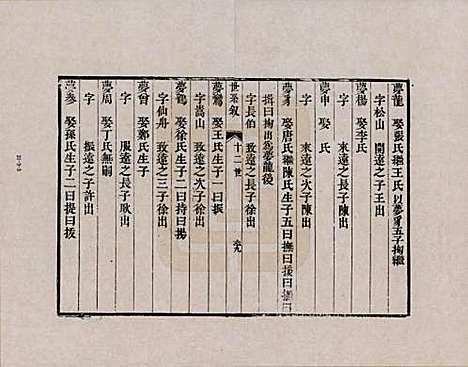 夢龍 娶張氏繼王氏以夢豸五子掬繼
字松山 開遠之子王出
夢楊 娶李氏
字 來遠之長子陳出
夢申 娶 氏
字 來遠之次子陳出
夢豸 娶唐氏繼陳氏生子五曰撫曰援曰
揖曰掬出爲夢龍後
字長伯 致遠之長子徐出
世系叙 十二世
夢鸞 娶王氏生子一曰振
字嵩山 致遠之次子徐出
夢鶴 娶徐氏生子二曰持曰揚
字仙舟 致遠之三子徐出
夢曾 娶鄭氏生子
字 服遠之長子耿出
夢周 娶丁氏無嗣
字 振遠之子許出
夢參 娶孫氏生子二曰提曰拔